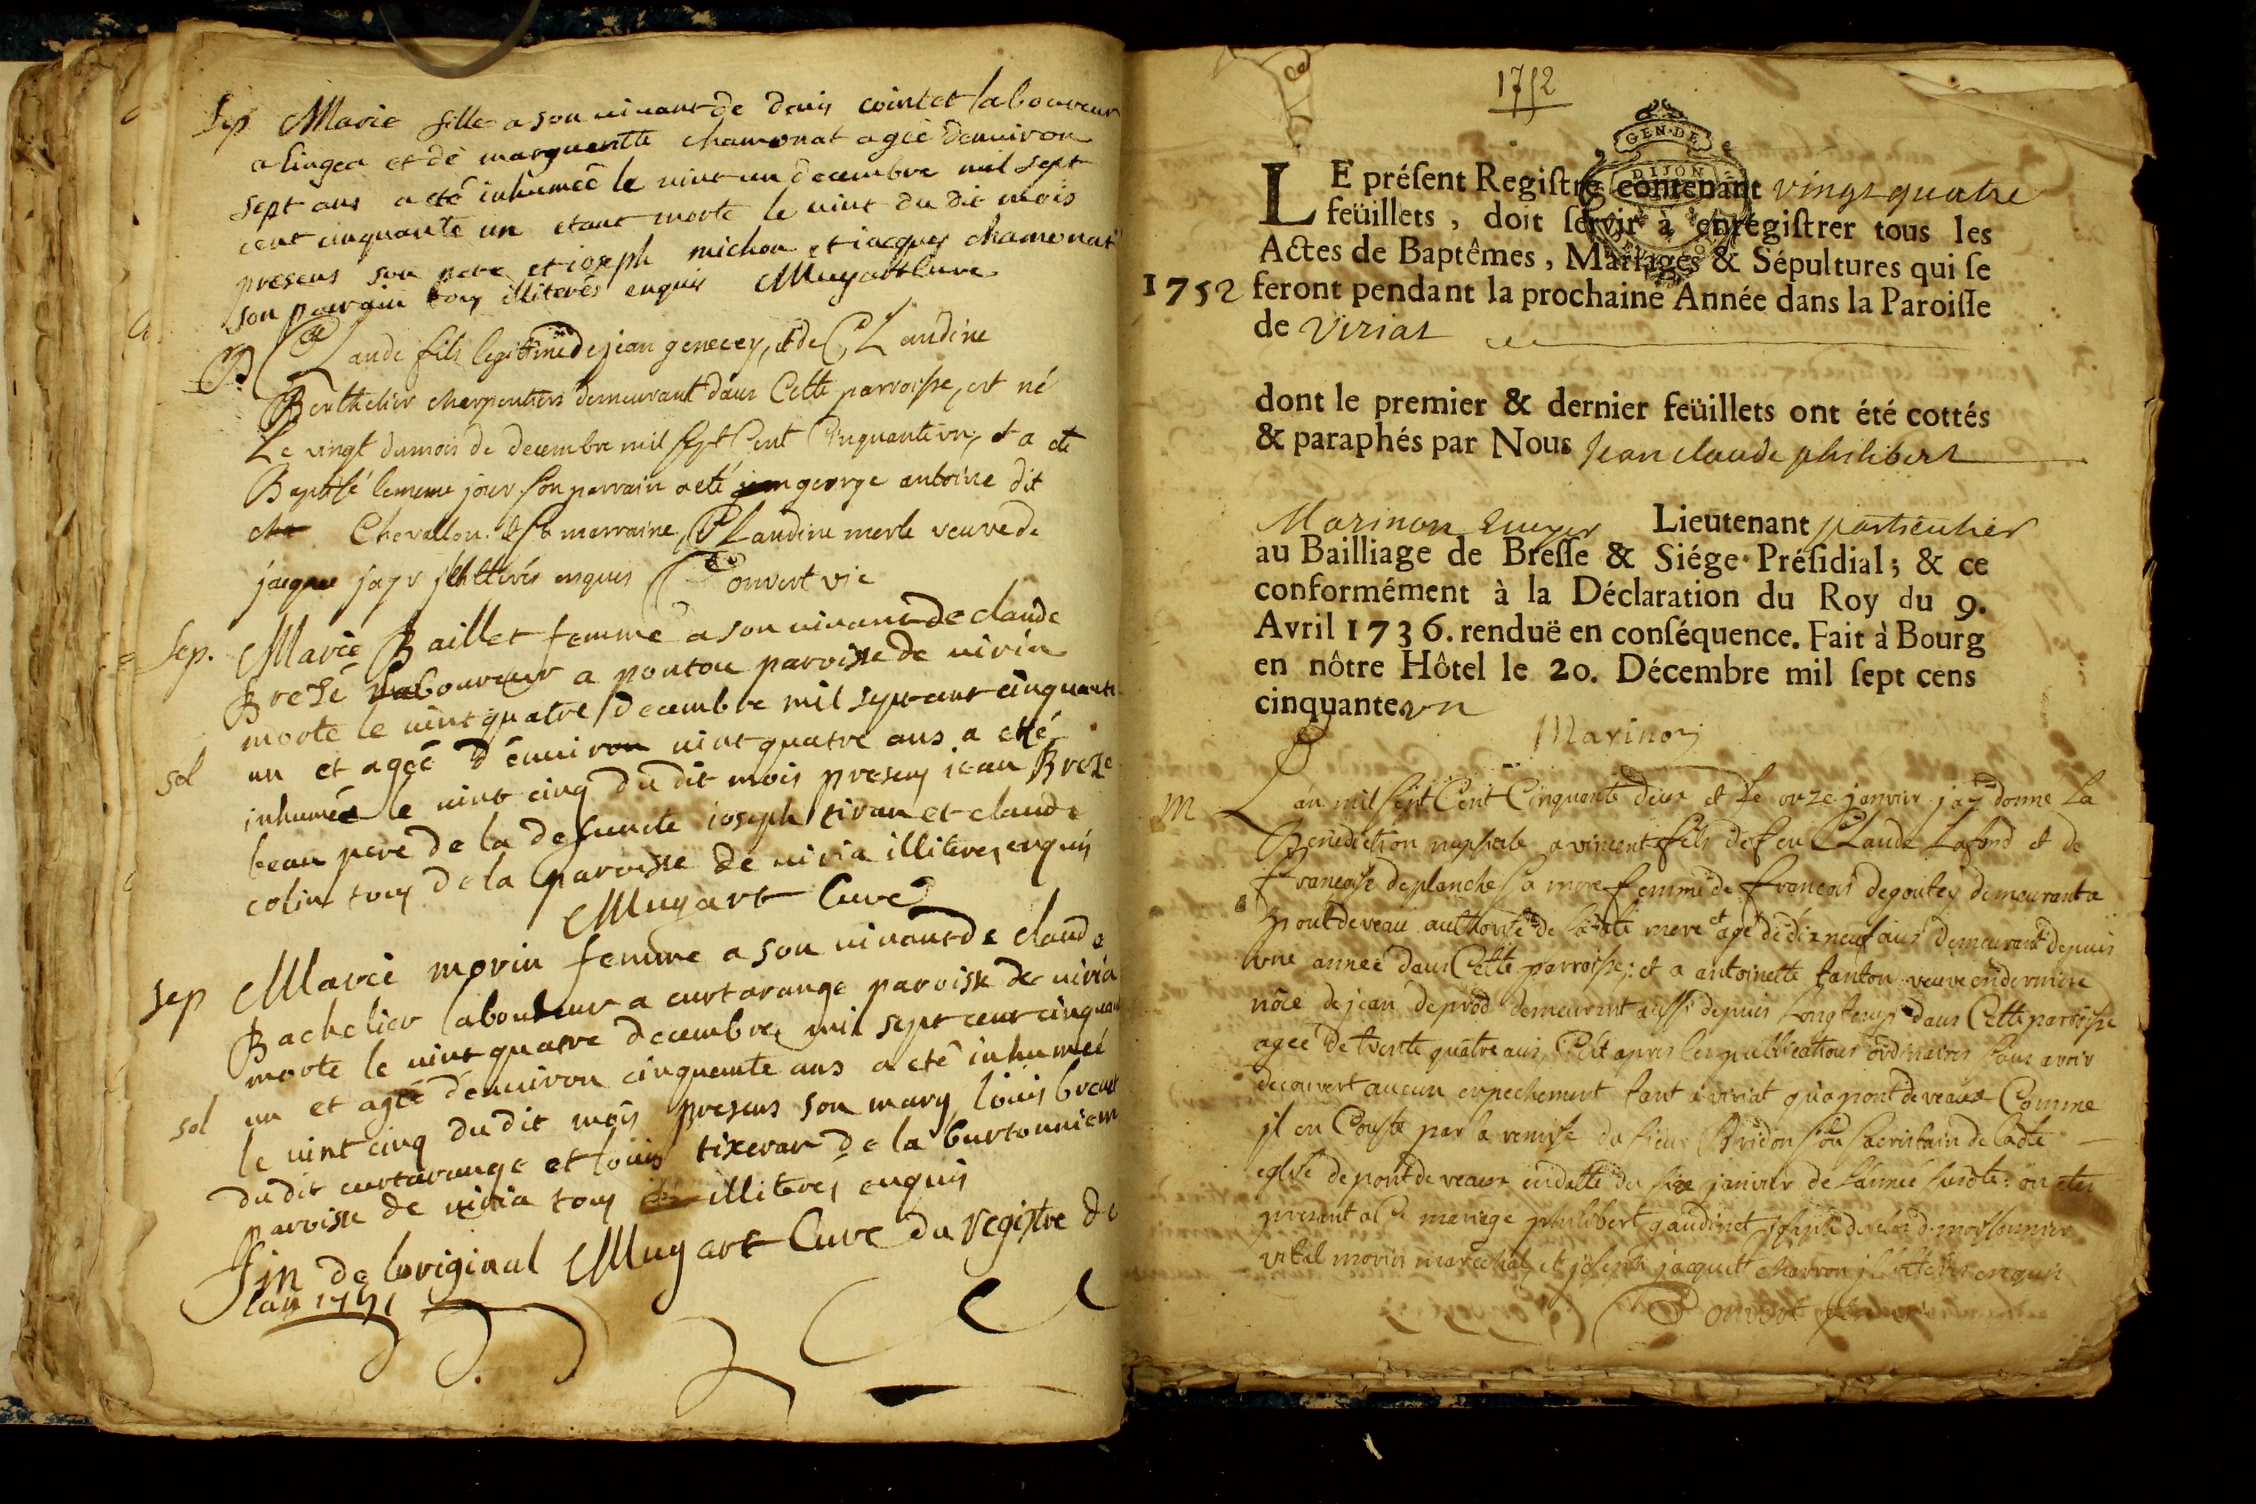 Sep Marie fille a son vivant de denis cointet laboureur
a lingea et de marguerite chamonat agée denviron
sept ans a eté inhumeé le vint un decembre mil sept
cent cinquante un etant morte le vint du dit mois
presens son pere et ioseph michon et iacques chamonat
son parain tous illiterés enquis Muyart Cure
B Claude fils legitime de jean genecey, et de CLaudine
Berthelier charpentiers demeurant dans Cette parroisse, est né
Le vingt du mois de decembre mil sept Cent Cinquante un, et a eté
Baptisé le meme jour son parrain a eté george antoine dit
Chevallon. & sa marraine, CLaudine merle veuve de
jacque jayr jllitterés enquis Convert vic
Sep. Marie Baillet femme a son vivant de claude
Brezé laboureur a poutou paroisse de viria
morte le vint quatre decembre mil sept cent cinquante
sol un et ageé d'environ vint quatre ans a eté
inhumeé le vint cinq du dit mois presens iean Breze
beau pere de la defuncte ioseph tiran et claude
colin tous de la paroisse de viria illiteres enquis
Muyart Curé
sep Marie morin femme a son vivant de claude
Bachelier laboureur a curtarange paroisse de viria
morte le vint quatre decembre mil sept cent cinquante
sol un et ageé d'environ cinquante ans a eté inhumeé
le vint cinq du dit mois presens son mary louis
du dit curtarange et louis tixeran de la
paroisse de viria tous illiteres enquis
Fin de loriginal Muyart Cure du registre de
lan 1751
1752
GEN·DE
DIJON
LE présent Registre contenant vingt quatre
feüillets, doit servir à enregistrer tous les
Actes de Baptêmes, Mariages & Sépultures qui se
1752 feront pendant la prochaine Année dans la Paroisse
de Viriat
dont le premier & dernier feüillets ont été cottés
& paraphés par Nous Jean claude philibert
Marinon Ecuyer Lieutenant particulier
au Bailliage de Bresse & Siége Présidial; & ce
conformément à la Déclaration du Roy du 9.
Avril 1736. renduë en conséquence. Fait à Bourg
en nôtre Hôtel le 20. Décembre mil sept cens
cinquante un
Marinon
M Lan mil sept Cent Cinquante deux et Le onze janvier jay donne La
Benediction nuptiale a vincent fils de feu CLaude Lafond et de
Françoise deplanche sa mere femme de François degoutey demeurant a
pontdeveau authorité de la dite mere et agé de dix neuf ans demeurant depuis
une annee dans Cette parroisse; et a antoinette tanton veuve en derniere
nôce de jean deprod demeurant aussi depuis Longtemps dans Cette parroisse
agee de trente quatre ans, Et apres les publications ordinaires sans avoir
decouvert aucun empechement tant a viriat qu'a pont de veaux Comme
jl en Conste par la remise du sieur sacristain de ladte
eglise de pont de veaux en datte du six janvier de l'année susdte: on etes
present a Ce mariage philibert gaudinet
vital morin marechal, et joseph jacquet charron jllitterés enquis
Convert